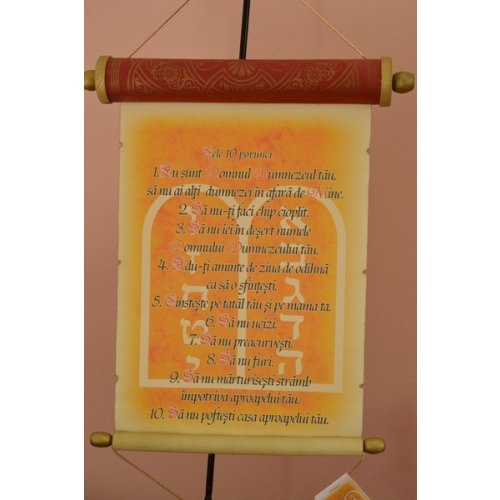 Cele 10 porunci
1. Eu sunt Domnul Dumnezeul tău,
să nu ai alți dumnezei în afară de Mine.
2. Să nu-ți faci chip cioplit.
3. Să nu iei în deșert numele
Domnului Dumnezeului tău.
4. Adu-ți aminte de ziua de odihnă
ca să o sfințești.
5. Cinstește pe tatăl tău și pe mama ta.
6. Să nu ucizi.
7. Să nu preacurvești.
8. Să nu furi.
9. Să nu mărturisești strâmb
împotriva aproapelui tău.
10. Să nu poftești casa aproapelui tău.